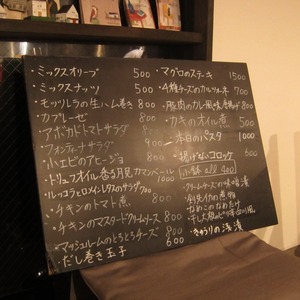 ・ミックスオリーブ 500
・ミックスナッツ 500
・モッツァレラの生ハム巻き 800
・カプレーゼ 800
・アボカドトマトサラダ 800
・フォンティーナサラダ 900
・小エビのアヒージョ 800
・トリュフオイル香る月見カマンベール 1000
・ルッコラとロメインレタスのサラダ 700
・チキンのトマト煮 800
・チキンのマスタードクリームソース 800
・マッシュルームのとろとろチーズ 800
・だし巻き玉子 600
・マグロのステーキ 1500
・4種チーズのカルツォーネ 700
・豚肉のカレー風味揚げ 800
・カキのオイル煮 500
・本日のパスタ 1000
・揚げなすのコロッケ 600
小鉢 all 400
・クリームチーズの味噌漬
・なめこのなめたけ
・きゅうりの浅漬